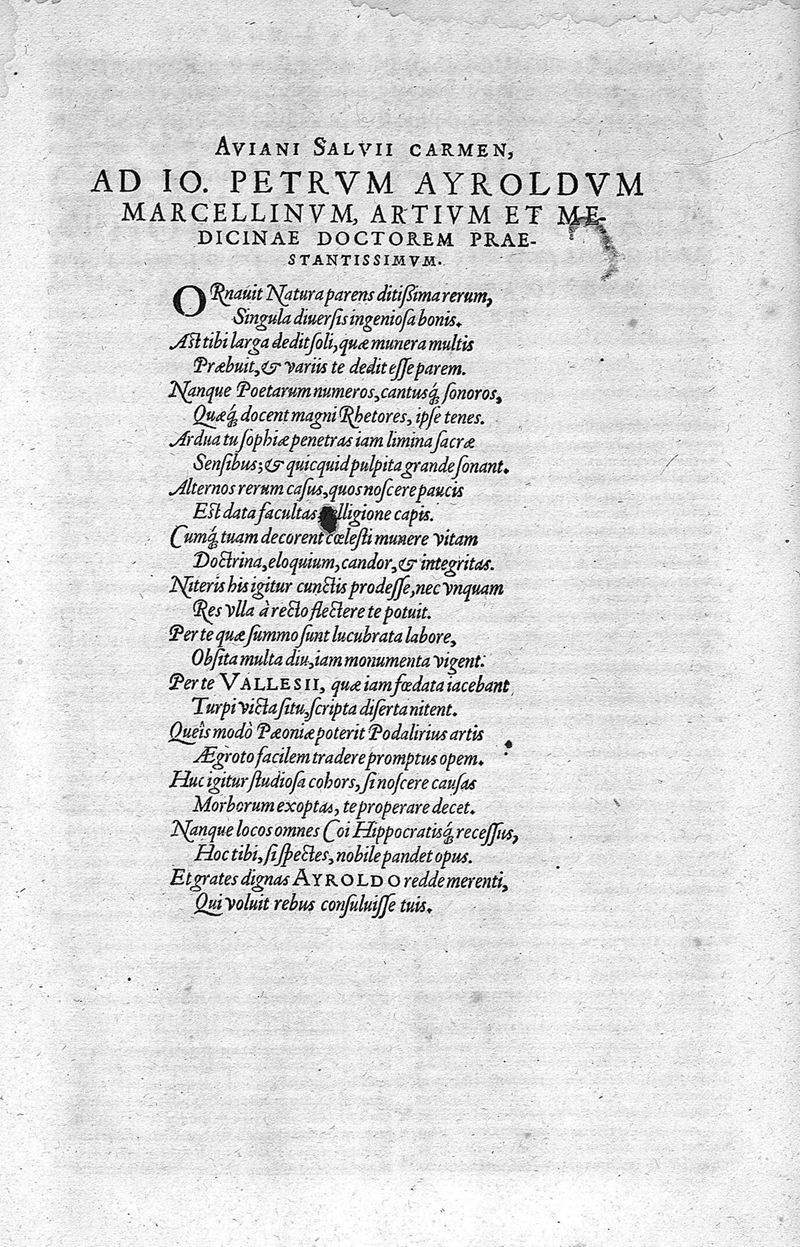 AVIANI SALVII CARMEN,
AD IO. PETRVM AYROLDVM
MARCELLINVM, ARTIVM ET ME-
DICINAE DOCTOREM PRAE-
STANTISSIMVM.
ORnauit Natura parens ditißima rerum,
Singula diuersis ingeniosa bonis.
Ast tibi larga dedit soli, quæ munera multis
Præbuit, & variis te dedit esse parem.
Nanque Poetarum numeros, cantusq́; sonoros,
Quæq́; docent magni Rhetores, ipse tenes.
Ardua tu sophiæ penetras iam limina sacræ
Sensibus; & quicquid pulpita grande sonant.
Alternos rerum casus, quos noscere paucis
Est data facultas lligione capis.
Cumq́; tuam decorent cœlesti munere vitam
Doctrina, eloquium, candor, & integritas.
Niteris his igitur cunctis prodesse, nec vnquam
Res vlla à recto flectere te potuit.
Per te quæ summo sunt lucubrata labore,
Obsita multa diu, iam monumenta vigent:
Per te VALLESII, quæ iam fœdata iacebant
Turpi victa situ, scripta diserta nitent.
Queîs modò Pæoniæ poterit Podalirius artis
Ægroto facilem tradere promptus opem.
Huc igitur studiosa cohors, si noscere causas
Morborum exoptas, te properare decet.
Nanque locos omnes Coi Hippocratisq́; recessus,
Hoc tibi, si spectes, nobile pandet opus.
Et grates dignas AYROLDO redde merenti,
Qui voluit rebus consuluisse tuis.